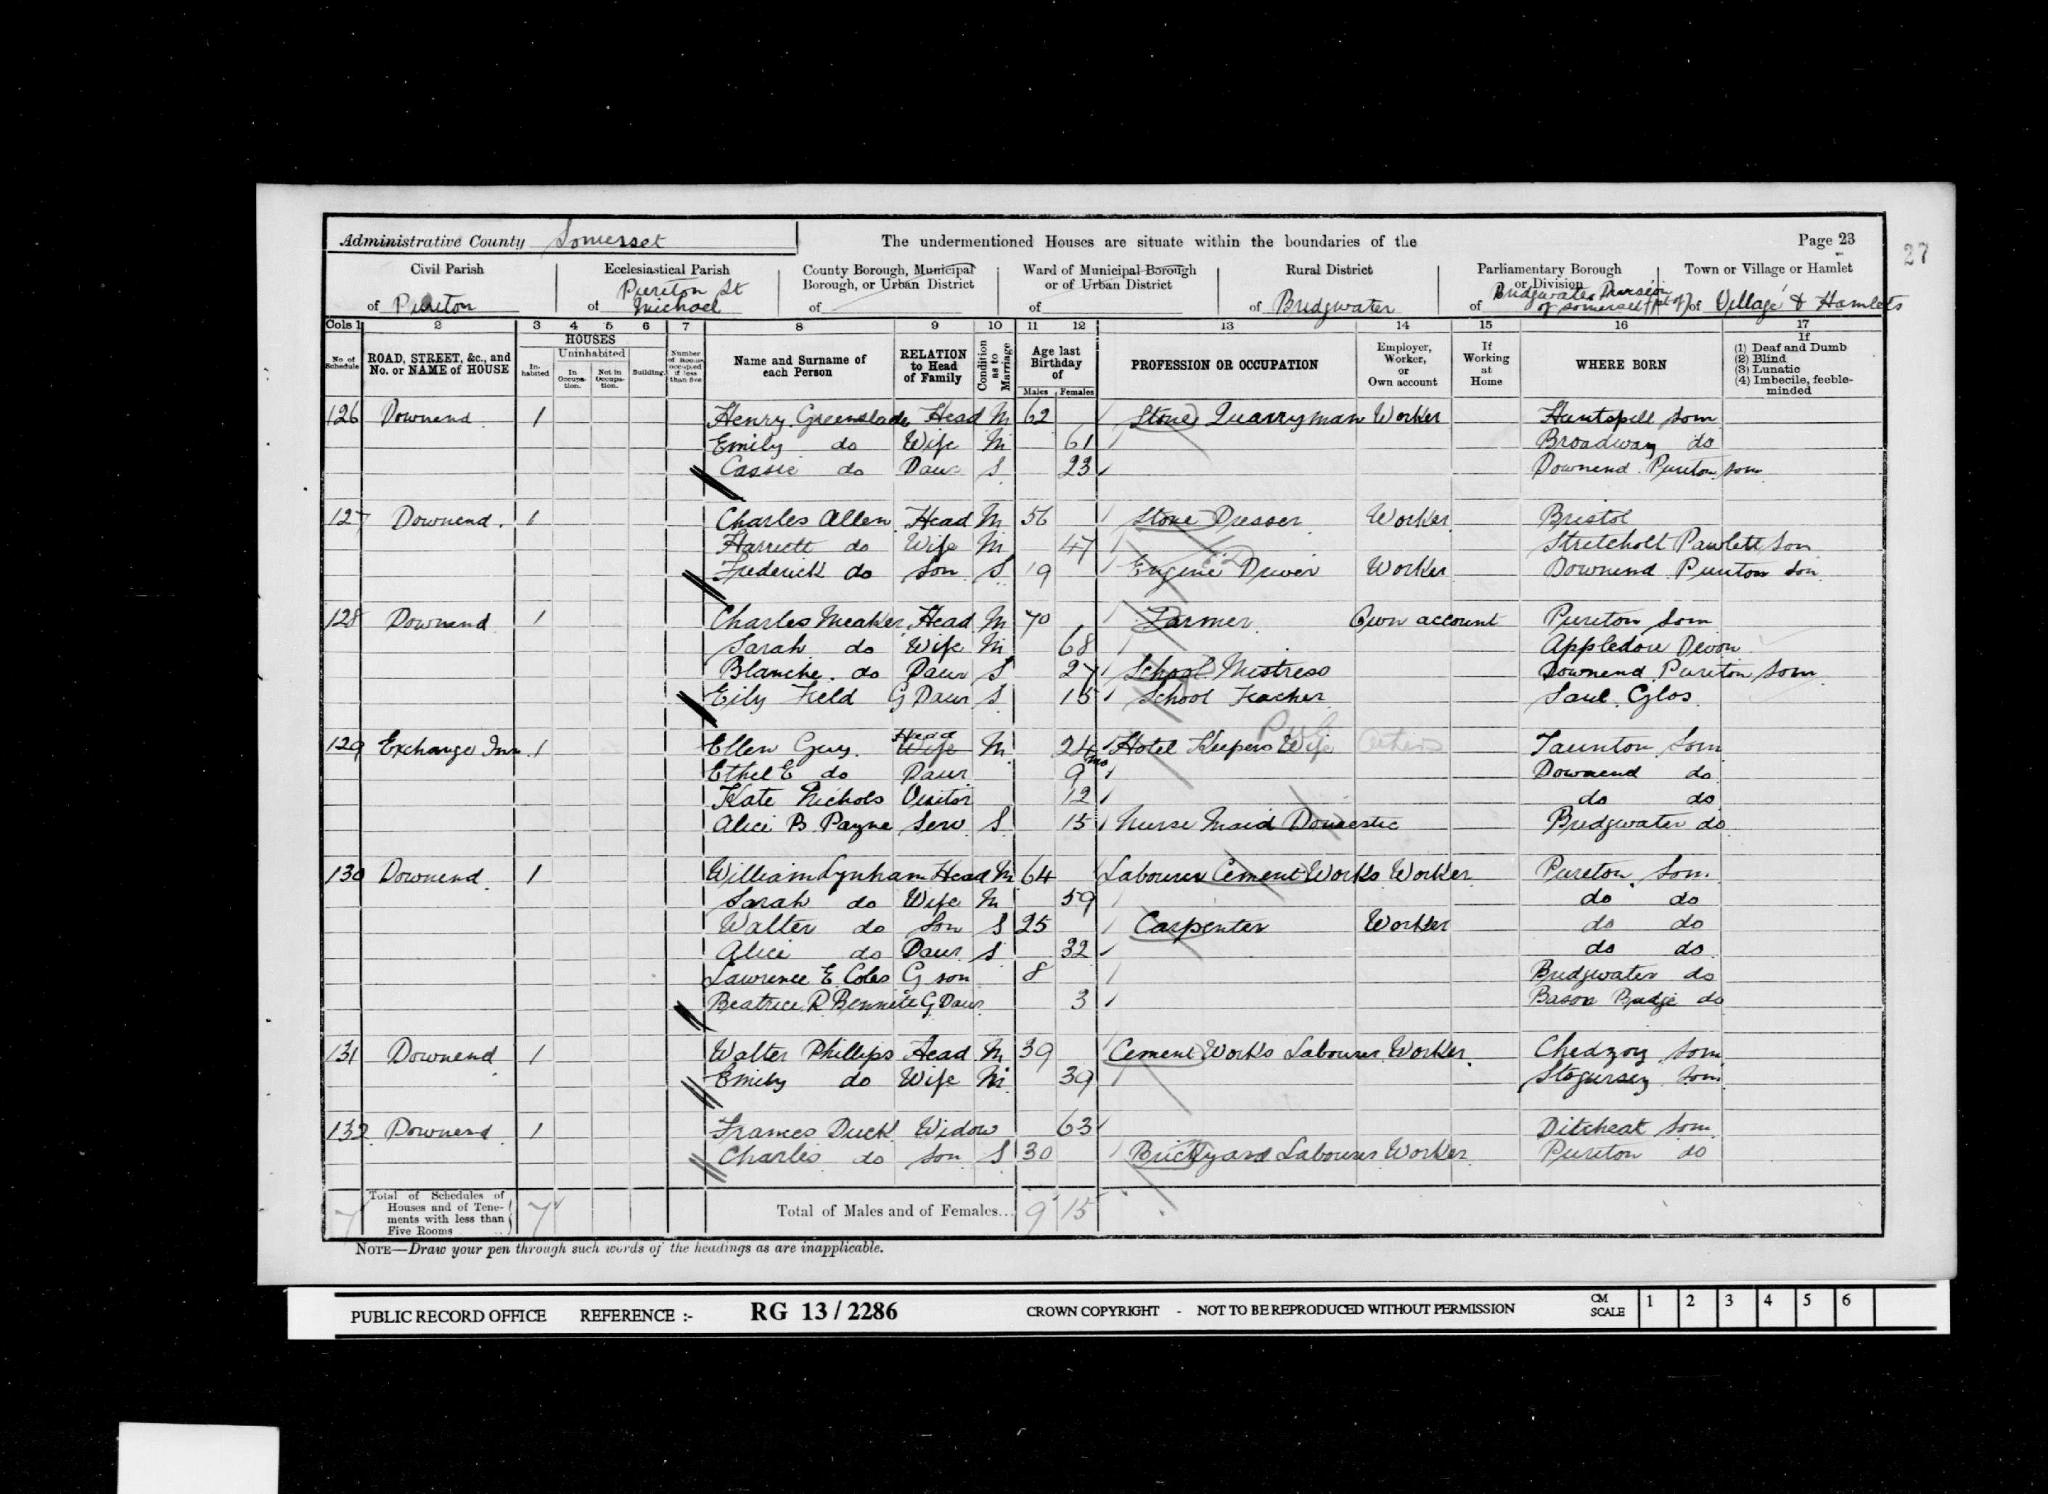 Administrative County Somerset
The undermentioned Houses are situate within the boundaries of the
Page 23
27
Civil Parish
of Puriton
Ecclesiastical Parish
of Puriton St Michael
County Borough, Municipal Borough, or Urban District
of
Ward of Municipal Borough or of Urban District
of
Rural District
of Bridgwater
Parliamentary Borough or Division
of Bridgwater Division of Somerset (pt of)
Town or Village or Hamlet
of Village & Hamlets
Cols 1 2 3 4 5 6 7 8 9 10 11 12 13 14 15 16 17
No. of Schedule
ROAD, STREET, &c., and No. or NAME of HOUSE
HOUSES
Inhabited
Uninhabited
In Occupation.
Not in Occupation.
Building.
Number of Rooms occupied if less than five
Name and Surname of each Person
RELATION to Head of Family
Condition as to Marriage
Age last Birthday of
Males Females
PROFESSION OR OCCUPATION
Employer, Worker, or Own account
If Working at Home
WHERE BORN
If
(1) Deaf and Dumb
(2) Blind
(3) Lunatic
(4) Imbecile, feeble-minded
126 Downend 1 Henry Greenslade Head M 62 Stone Quarryman Worker Huntspill Som
Emily do Wife M 61 Broadway do
Cassie do Daur S 23 Downend Puriton Som
127 Downend 1 Charles Allen Head M 56 Stone Dresser Worker Bristol
Harriett do Wife M 47 Stretcholt Pawlett Som
Frederick do Son S 19 Engine Driver Worker Downend Puriton Som
128 Downend 1 Charles Meaker Head M 70 Farmer Own account Puriton Som
Sarah do Wife M 68 Appledore Devon
Blanche do Daur S 27 School Mistress Downend Puriton Som
Eily Field G Daur S 15 School Teacher Saul Glos
129 Exchange Inn 1 Ellen Guy Head Wife M 24 Hotel Keepers Wife Others Taunton Som
Ethel E do Daur 9 mo Downend do
Kate Nichols Visitor 12 do do
Alice B Payne Serv S 15 Nurse Maid Domestic Bridgwater do
130 Downend 1 William Lynham Head M 64 Labourer Cement Works Worker Puriton Som
Sarah do Wife M 59 do do
Walter do Son S 25 Carpenter Worker do do
Alice do Daur S 32 do do
Lawrence E Coles G son 8 Bridgwater do
Beatrice R Bennett G Daur 3 Bason Bridge do
131 Downend 1 Walter Phillips Head M 39 Cement Works Labourer Worker Chedzoy Som
Emily do Wife M 39 Stogursey Som
132 Downend 1 Frances Duck Widow 63 Ditcheat Som
Charles do Son S 30 Brickyard Labourer Worker Puriton do
7 Total of Schedules of Houses and of Tenements with less than Five Rooms 7 Total of Males and of Females... 9 15
NOTE—Draw your pen through such words of the headings as are inapplicable.
PUBLIC RECORD OFFICE REFERENCE :- RG 13 / 2286 CROWN COPYRIGHT - NOT TO BE REPRODUCED WITHOUT PERMISSION CM SCALE 1 2 3 4 5 6